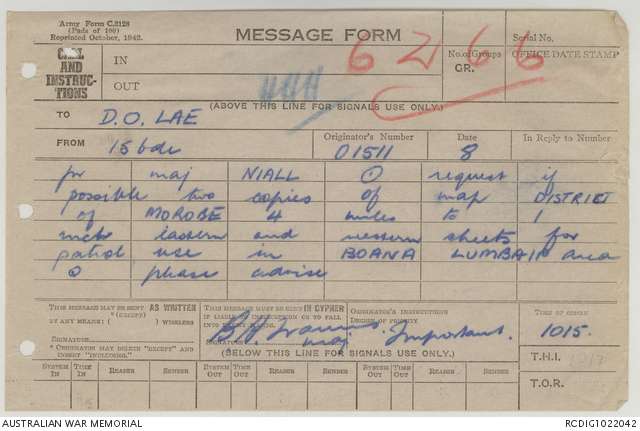 Army Form C.2128
(Pads of 100)
Reprinted October, 1942.
MESSAGE FORM
Serial No.
CALL AND INSTRUC-TIONS
IN
OUT
No. of Groups
GR.
OFFICE DATE STAMP
6 2 6 6
(ABOVE THIS LINE FOR SIGNALS USE ONLY.)
TO D.O. LAE
FROM 15 bde
Originator's Number 01511
Date 8
In Reply to Number
for maj NIALL ⊙ request if
possible two copies of map DISTRICT
of MOROBE 4 miles to 1
inch eastern and western sheets for
patrol use in BOANA LUMBAIP area
⊙ please advise
THIS MESSAGE MAY BE SENT AS WRITTEN
(EXCEPT)
BY ANY MEANS ( ) WIRELESS
SIGNATURE
* ORIGINATOR MAY DELETE "EXCEPT" AND
INSERT "INCLUDING."
THIS MESSAGE MUST BE SENT IN CYPHER
IF LIABLE TO INTERCEPTION OR TO FALL
maj
ORIGINATOR'S INSTRUCTIONS
DEGREE OF PRIORITY
Important.
TIME OF ORIGIN
1015.
T.H.I.
T.O.R.
(BELOW THIS LINE FOR SIGNALS USE ONLY.)
SYSTEM IN TIME IN READER SENDER SYSTEM OUT TIME OUT READER SENDER SYSTEM OUT TIME OUT READER SENDER
AUSTRALIAN WAR MEMORIAL
RCDIG1022042